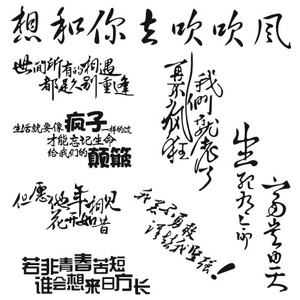 想和你去吹吹风
世间所有的相遇
都是久别重逢
再不疯狂
我们就老了
生活就要像疯子一样的过
才能忘记生命
给我们的颠簸
生死有命
富贵由天
但愿他年相见
花开如昔
我不勇敢
谁替我坚强!
若非青春苦短
谁会想来日方长